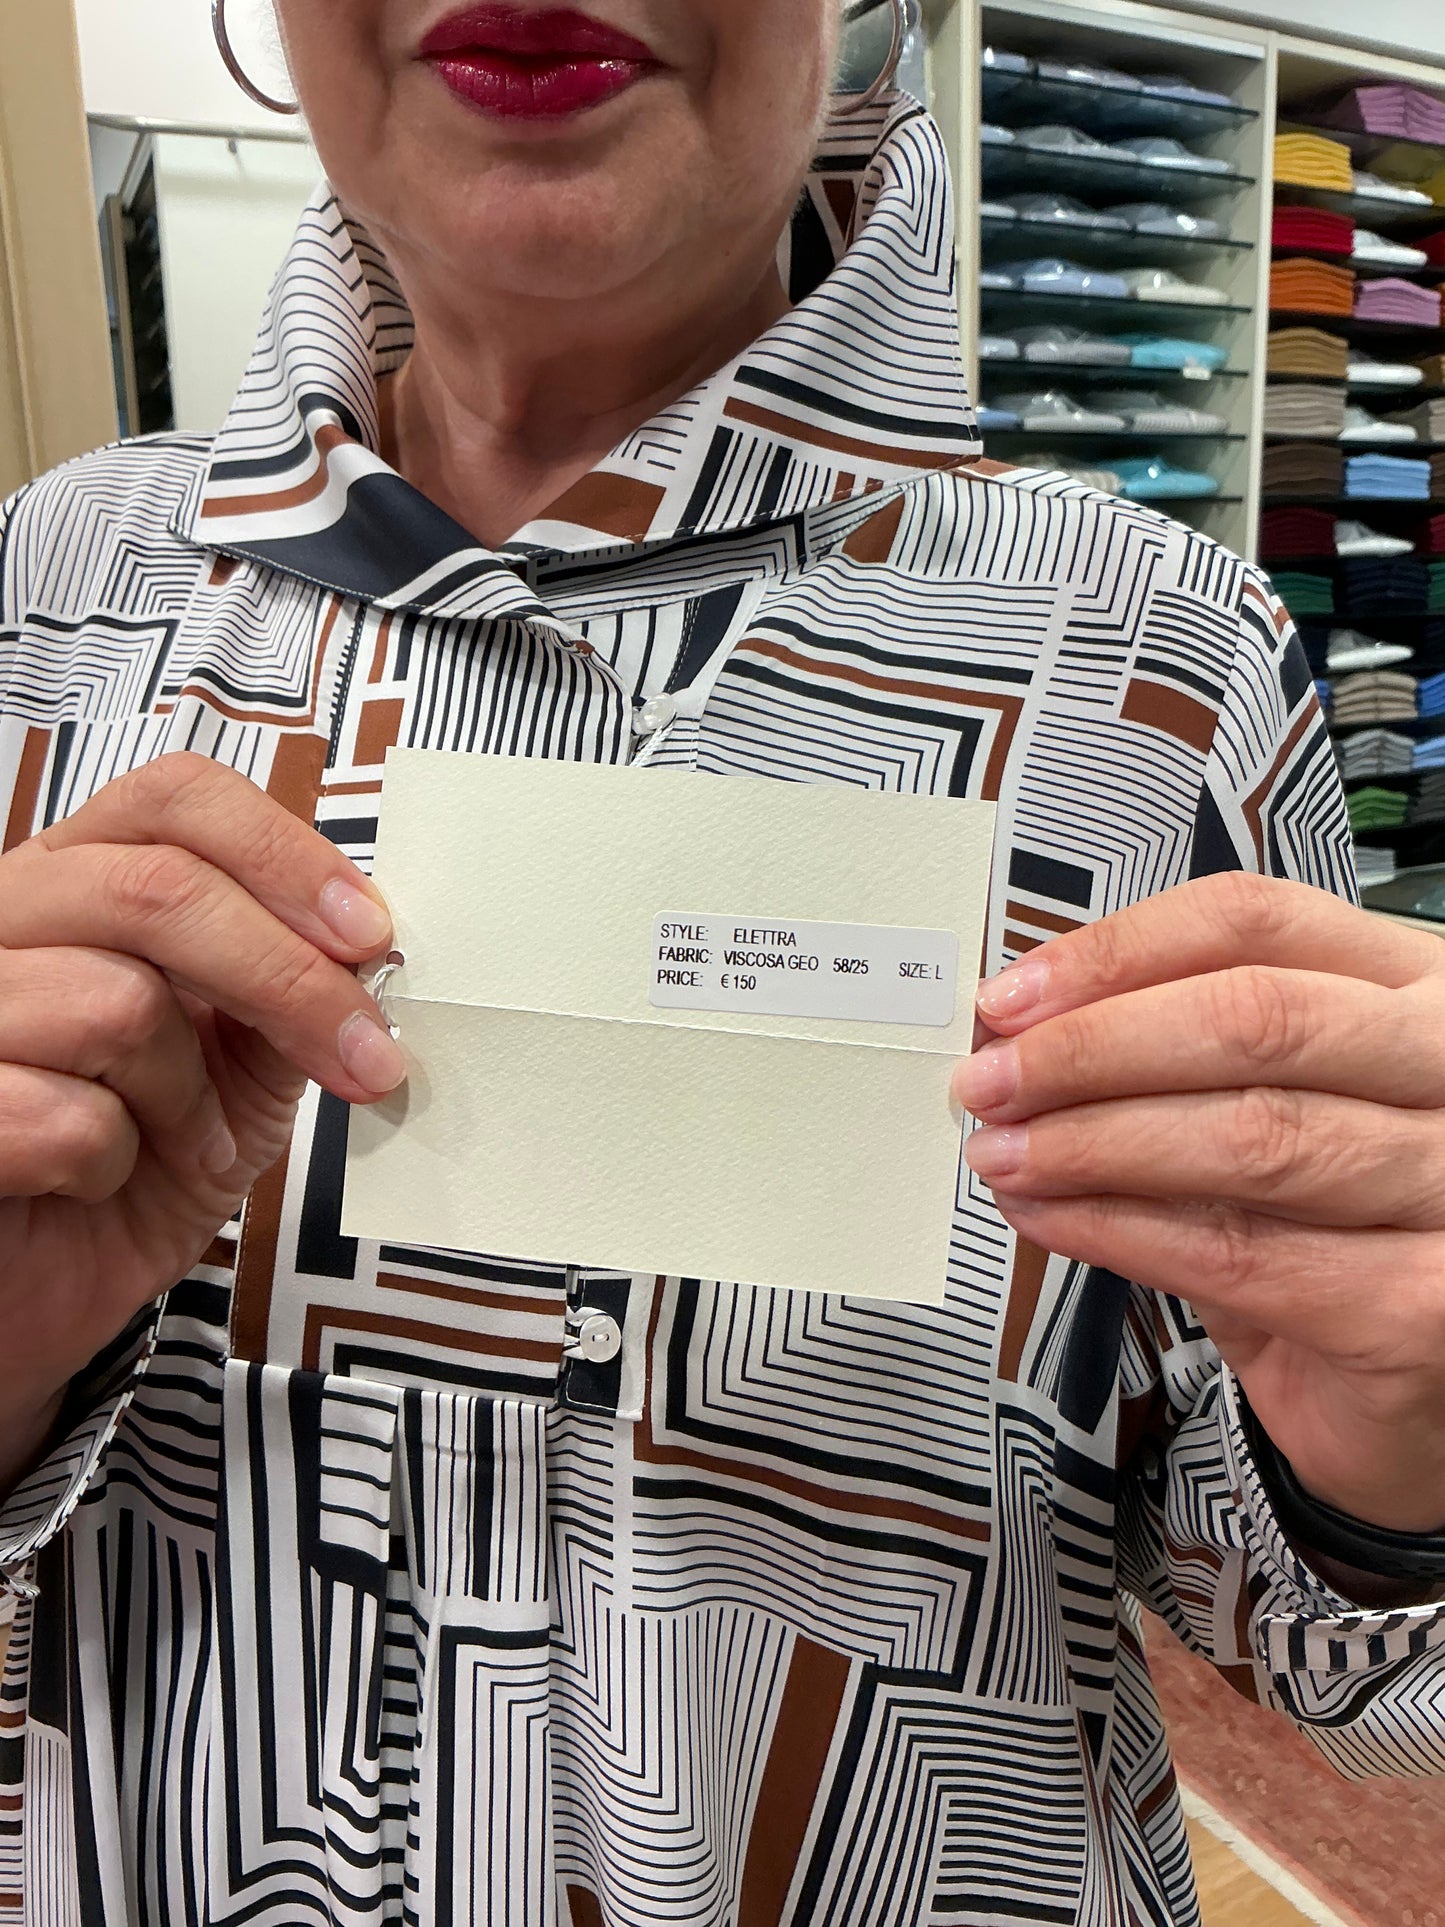 STYLE: ELETTRA
FABRIC: VISCOSA GEO 58/25 SIZE: L
PRICE: € 150